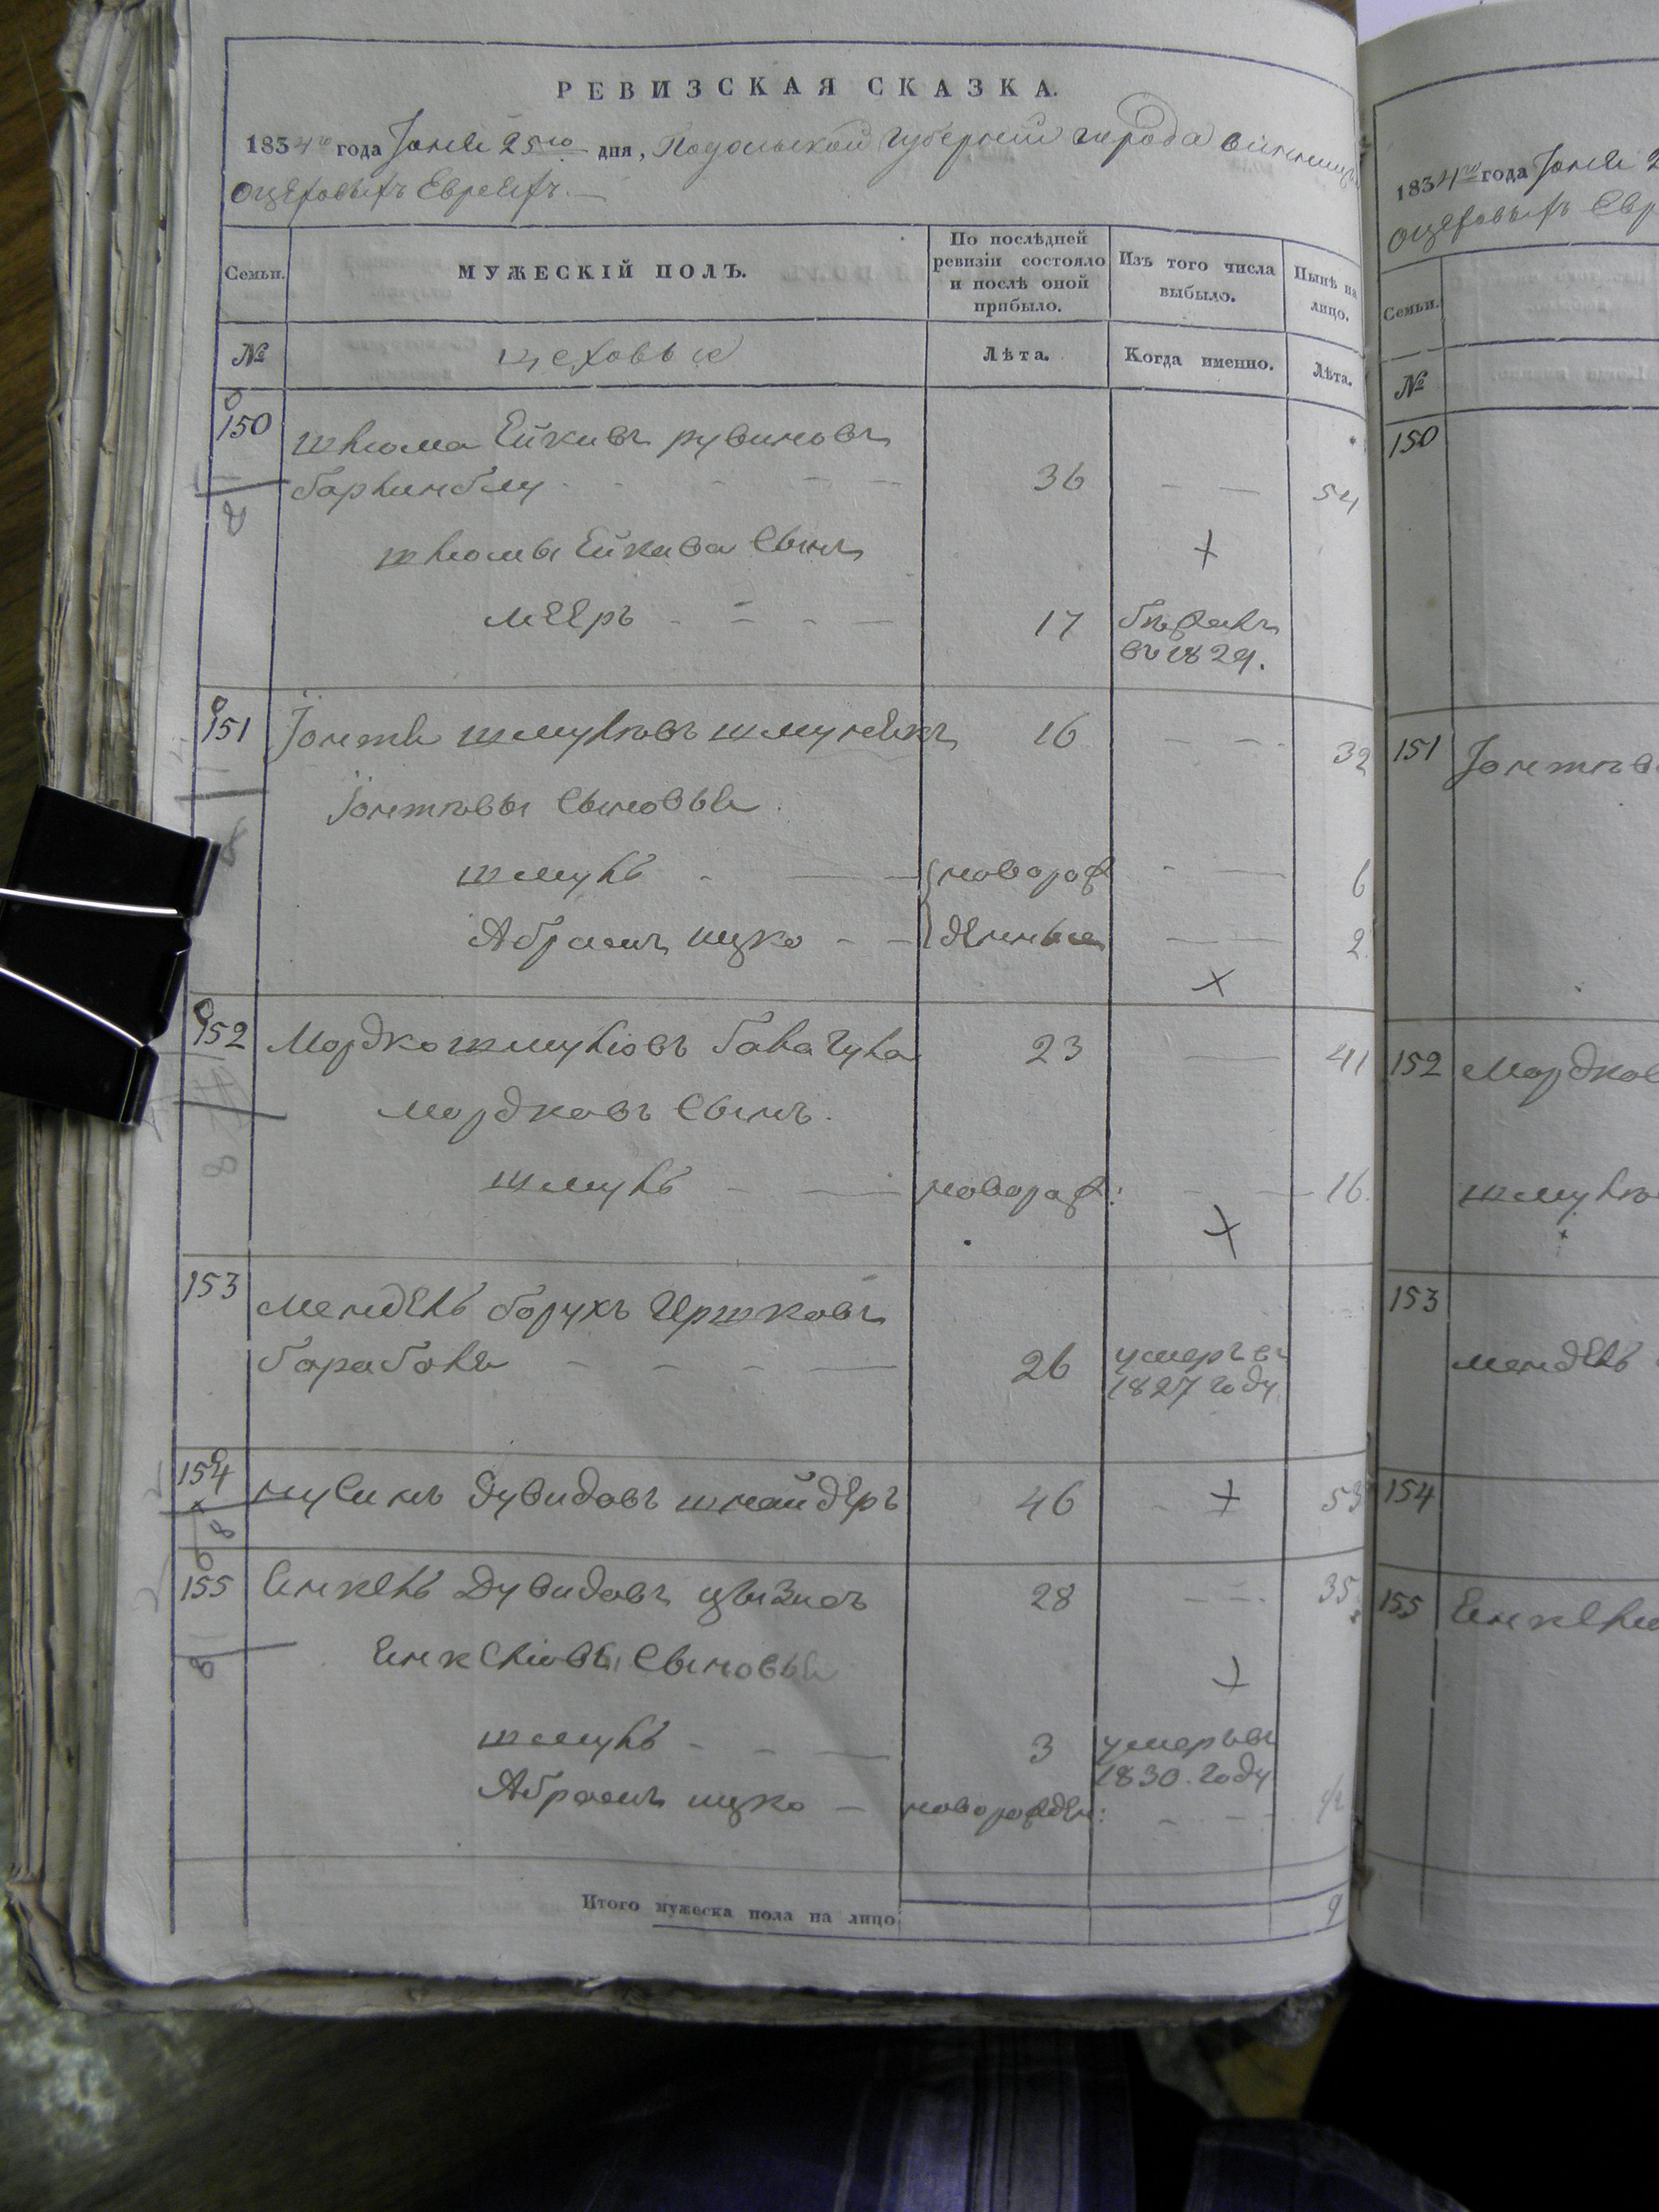 РЕВИЗСКАЯ СКАЗКА.
1834го года Іюня 25го дня, Подольской губерніи города Винницы
о цеховыхъ Евреяхъ.
Семьи.
МУЖЕСКІЙ ПОЛЪ.
По послѣдней ревизіи состояло и послѣ оной прибыло.
Изъ того числа выбыло.
Нынѣ на лицо.
№ цеховые Лѣта. Когда именно. Лѣта.
150 Шлюма Ейкивъ рувиновъ
36 54
Шлюмы Ейкива Сынъ
Мееръ 17 бѣжалъ
въ 1829.
151 Іонтя шмулювъ 16 32
Іонтювы Сыновья
шмуль новорож 6
Абрамъ ицко денные 2
152 Мордко шмулювъ балагула 23 41
Мордковъ Сынъ.
шмуль новорож: 16
153 Мендель борухъ Гершковъ
барабаль 26 умеръ въ
1827 году
154 нусинъ дувидовъ шнайдеръ 46 53
155 Енкель Дувидовъ 28 35
Енкелювы Сыновья
шмуль 3 умеръ въ
1830. году
Абрамъ ицко новорожден: 1/2
Итого мужеска пола на лицо 9
1834го года Іюня 2
о цеховыхъ Евр
Семьи.
№
150
151 Іонтюв
152 Мордков
шмулю
153
мендель
154
155 Енкелю